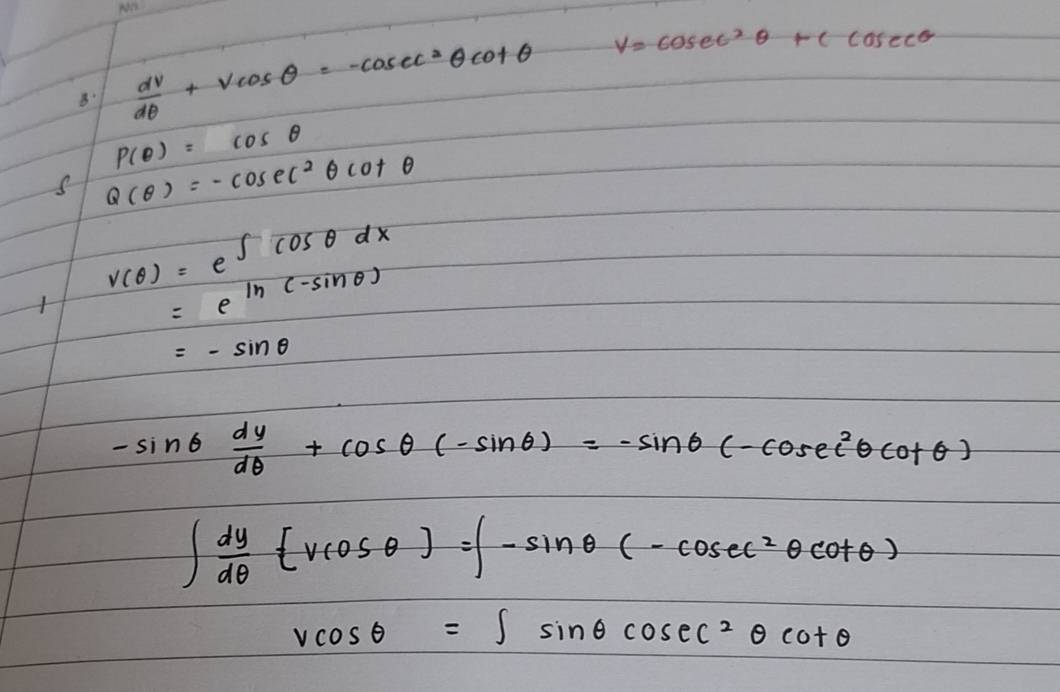 No.
8. dv/dθ + v cos θ = -cosec² θ cot θ v = cosec² θ + c cosec θ
P(θ) = cos θ
S Q(θ) = -cosec² θ cot θ
v(θ) = e^∫ cos θ dx
1 = e^ln (-sin θ)
= - sin θ
-sin θ dy/dθ + cos θ (-sin θ) = -sin θ (-cosec² θ cot θ)
∫ dy/dθ [v cos θ] = ∫ -sin θ (-cosec² θ cot θ)
v cos θ = ∫ sin θ cosec² θ cot θ